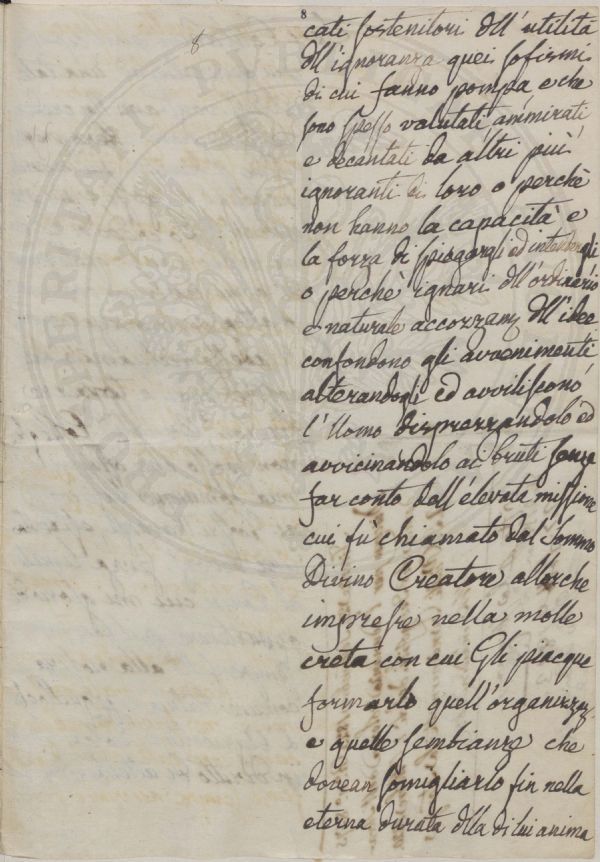 8
8
cati sostenitori dll'utilità
dll'ignoranza quei sofismi
di cui fanno pompa e che
sono spesso valutati, ammirati
e decantati da altri più
ignoranti di loro o perchè
non hanno la capacità e
la forza di spiegargli ed intendergli
o perchè ignari dll'ordinario
e naturale accozzamo dll'idee
confondono gli avvenimenti
alterandogli ed avviliscono
l'Uomo disprezzandolo ed
avvicinandolo ai bruti senza
far conto dell'elevata missione
cui fù chiamato dal Sommo
Divino Creatore allorche
impresse nella molle
creta con cui Gli piacque
formarlo quell'organizzaz.
e quelle sembianze che
dovean somigliarlo fin nella
eterna durata dlla di lui anima